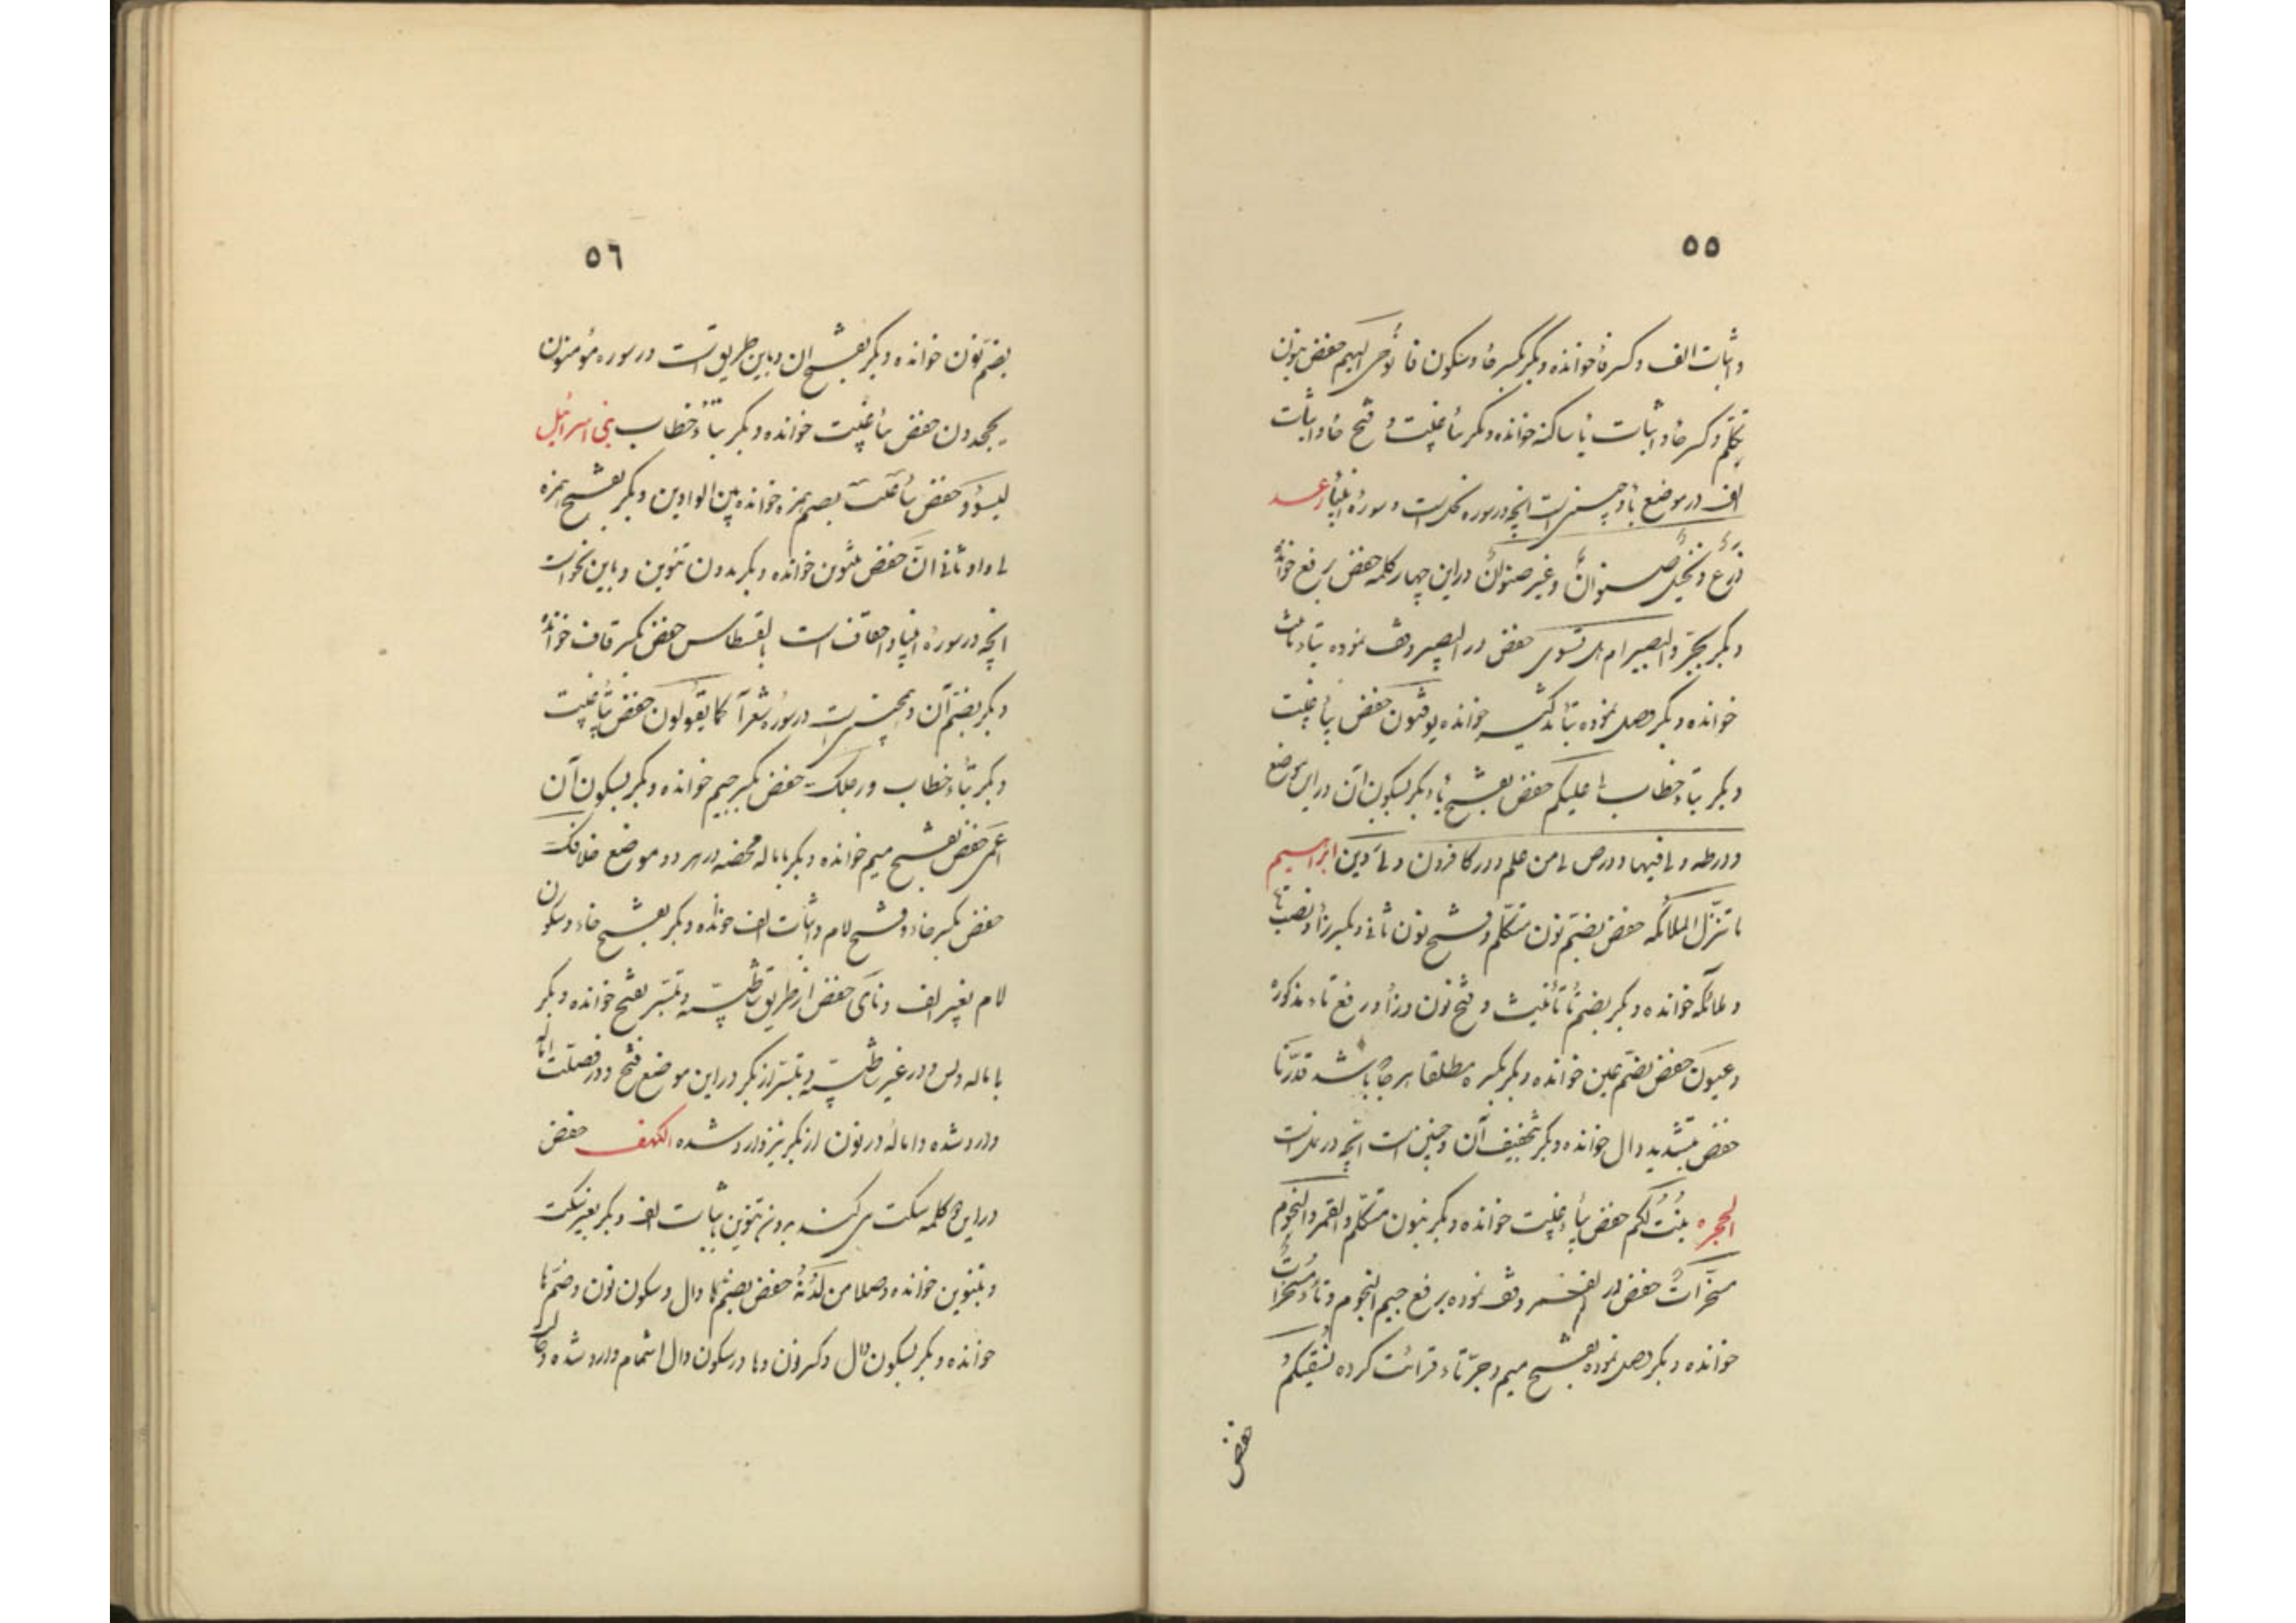 ٥٥
واثبات الف وكسر فا خوانده وبكر بكسر حا وسكون فا نوحى اليهم حفص بنون
تكلم وكسر حا واثبات يا ساكنه خوانده وبكر بياء غيبت و فتح حا واثبات
الف در موضع يا وچنين است آنچه در سوره نحل است و سورۀ انبيا رعد
زرعٌ ونخيلٌ صنوانٌ وغير صنوانٍ دراين چهار كلمه حفص برفع خوانده
وبكر بجر والبصير ام هل تستوى حفص در البصير وقف نموده بتاء تانيث
خوانده وبكر وصل نموده بياء تذكير خوانده يوقدون حفص بياء غيبت
وبكر بتاء خطاب لى عليكم حفص بفتح يا وبكر بسكون آن دراين موضع
ودر طه ولى فيها ودر ص لى من علم ودر كافرون ولى دين ابراهيم
ما ننزل الملائكه حفص بضم نون متكلم وفتح نون ثانى وبكسر زا ونصب تاء
ملائكه خوانده وبكر بضم تاء تأنيث و فتح نون وزا ورفع تاء مذكوره
وعيون حفص بضم عين خوانده وبكر بكسره مطلقا هر جا باشد قدّرنا
حفص بتشديد دال خوانده وبكر بتخفيف آن وچنين است آنچه در نمل است
الحجره ينبت لكم حفص بياء غيبت خوانده وبكر بنون متكلم والقمر والنجوم
مسخرات حفص در القمر وقف نموده برفع ميم النجوم وتاء مسخرات
خوانده وبكر وصل نموده بفتح ميم وجر تاء قرائت كرده نسقيكم
حفص
٥٦
بضم نون خوانده وبكر بفتح ان وباين طريق است در سوره مؤمنون
يجحدون حفص بياء غيبت خوانده وبكر بتاء خطاب بنى اسرائيل
ليسوؤا حفص بياء غيبت بضم همزه خوانده بين الواوين وبكر بفتح همزه
بى واو ثانى افّ حفص بتنوين خوانده وبكر بدون تنوين وباين نحو است
آنچه در سورۀ انبيا واحقاف است بالقسطاس حفص بكسر قاف خوانده
وبكر بضم آن وهمچنين است در سوره شعرا كما يقولون حفص بياء غيبت
وبكر بتاء خطاب ورجلك حفص بكسر جيم خوانده وبكر بسكون آن
اعمى حفص بفتح ميم خوانده وبكر باماله محضه در هر دو موضع خلافك
حفص بكسر خاء وفتح لام واثبات الف خوانده وبكر بفتح خاء وسكون
لام بغير الف ونأى حفص از طريق شاطبيه وتيسير بفتح خوانده وبكر
باماله ولى در غير شاطبيه وتيسير از بكر دراين موضع فتح ودر فصلت اماله
وارد شده واماله در نون از بكر نيز وارد شده الكهف حفص
دراين كلمه سكت مى كند بدون تنوين باثبات الف وبكر بغير سكت
وبتنوين خوانده وصلا من لدنه حفص بضم دال وسكون نون وضم ها
خوانده وبكر بسكون دال وكسر نون وها ودر سكون دال اشمام وارد شده